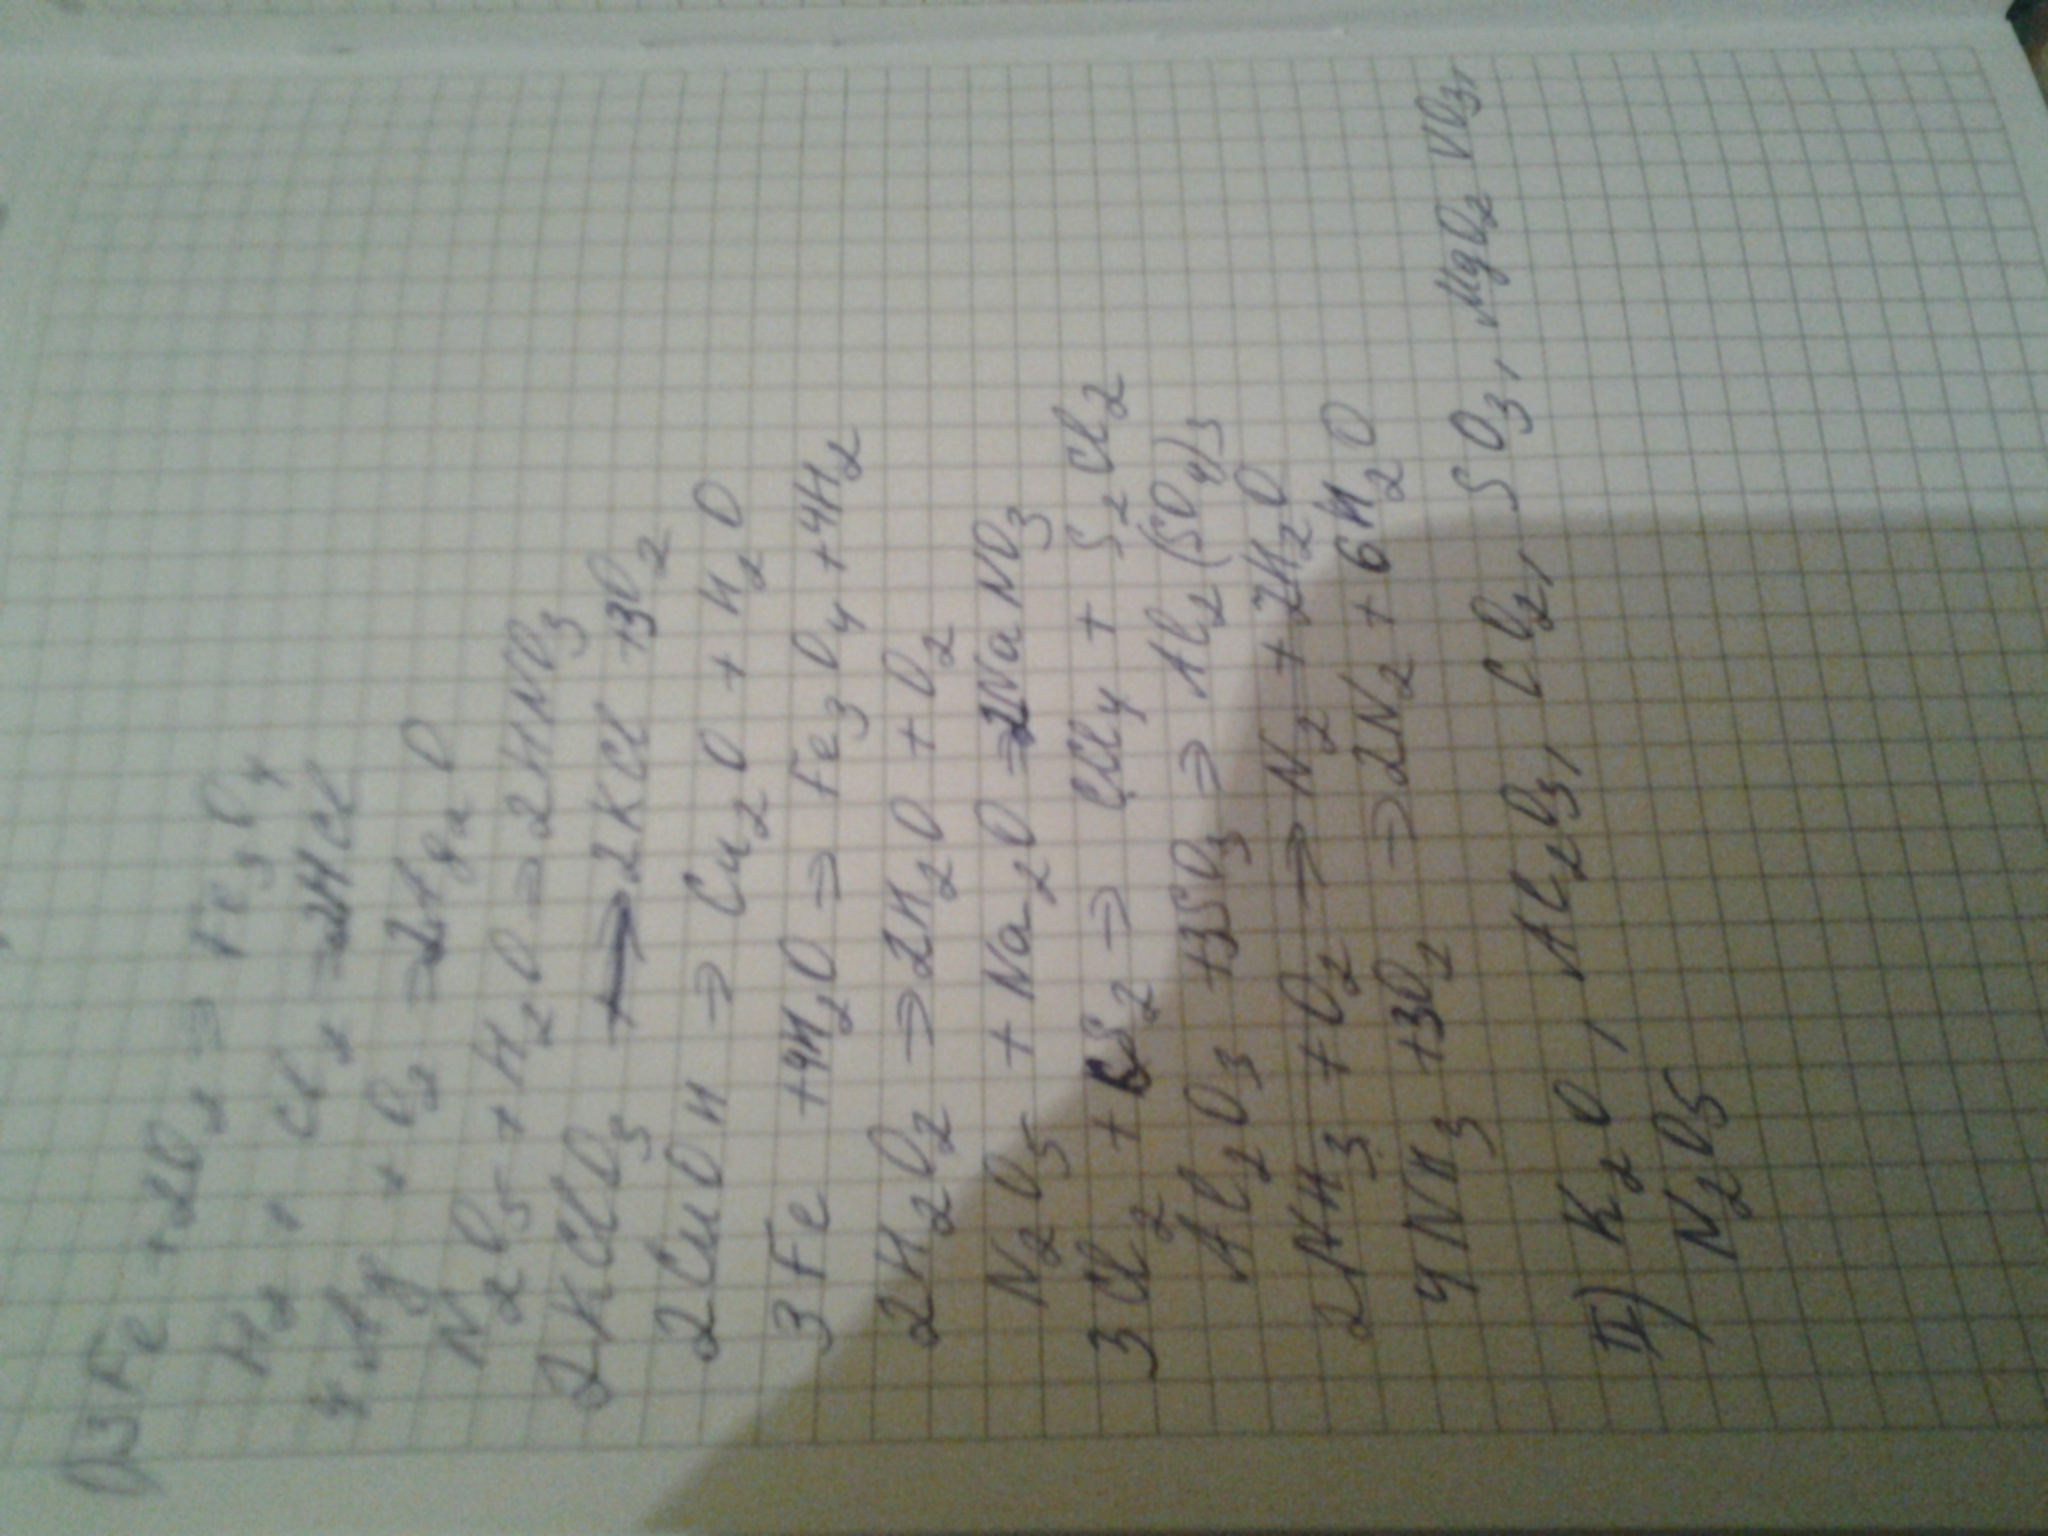 I) 3Fe + 2O2 => Fe3O4
H2 + Cl2 => 2HCl
4Ag + O2 => 2Ag2O
N2O5 + H2O => 2HNO3
2KClO3 → 2KCl + 3O2
2CuOH => Cu2O + H2O
3Fe + 4H2O => Fe3O4 + 4H2
2H2O2 => 2H2O + O2
N2O5 + Na2O => 2NaNO3
3Cl2 + CS2 => CCl4 + S2Cl2
Al2O3 + 3SO3 => Al2(SO4)3
2NH3 + O2 => N2 + 2H2O
4NH3 + 3O2 => 2N2 + 6H2O
II) K2O, Al2O3, Cl2, SO3, MgO2 VO3,
N2O5